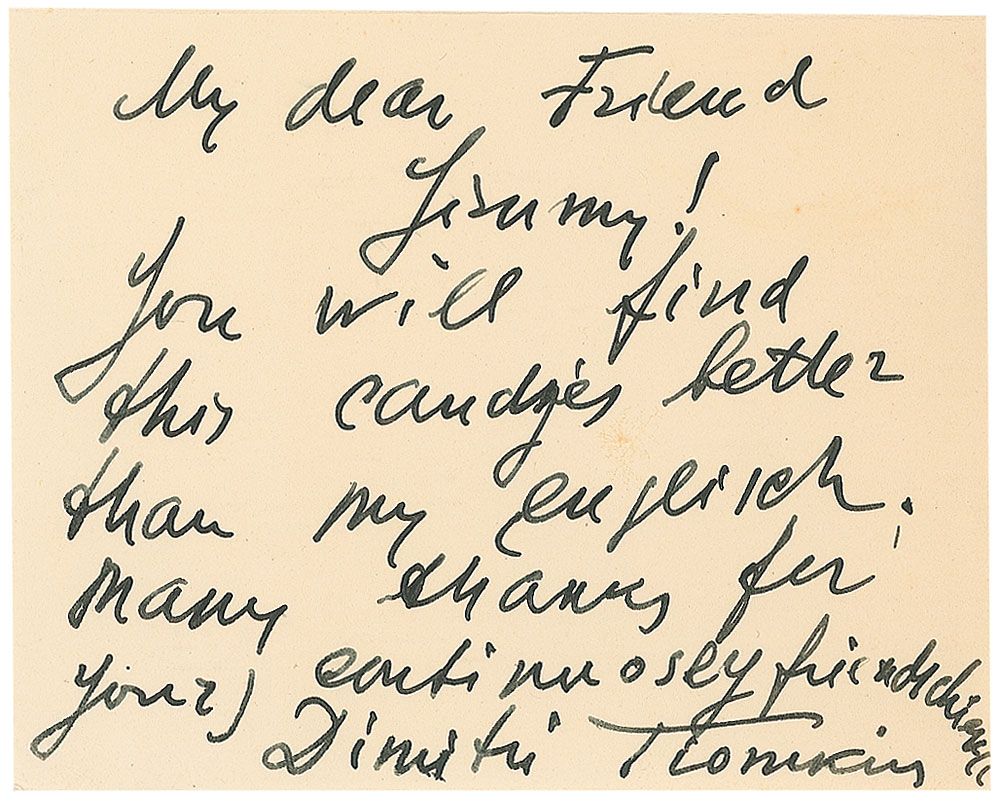 My dear Friend
Jimmy!
You will find
this candyies better
than my englisch.
Many thanks for
your) continuosely
Dimitri Tiomkin